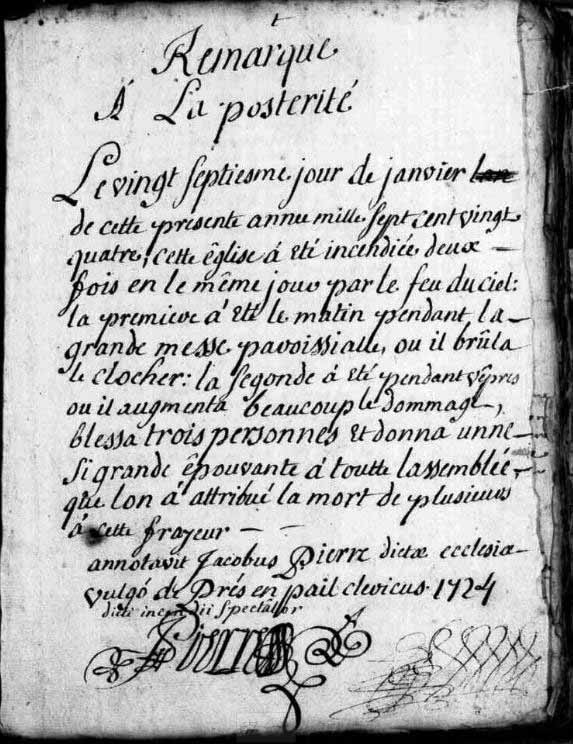 Remarque
À La posterité
Le vingt septiesme jour de janvier
de cette presente annee mille sept cent vingt
quatre, cette êglise á êté incendiée deux
fois en le même jour par le feu du ciel:
la premiere á êté le matin pendant la
grande messe paroissialle, ou il brûla
le clocher: la segonde á êté pendant vêpres
ou il augmenta beaucoup le dommage,
blessa trois personnes et donna unne
si grande êpouvante á toutte lassemblée,
que lon á attribué la mort de plusieurs
á cette frayeur
annotavit Jacobus Pierre dictæ ecclesiæ
vulgó de Prés en pail clericus. 1724
dicti incendii spectator
Pierre